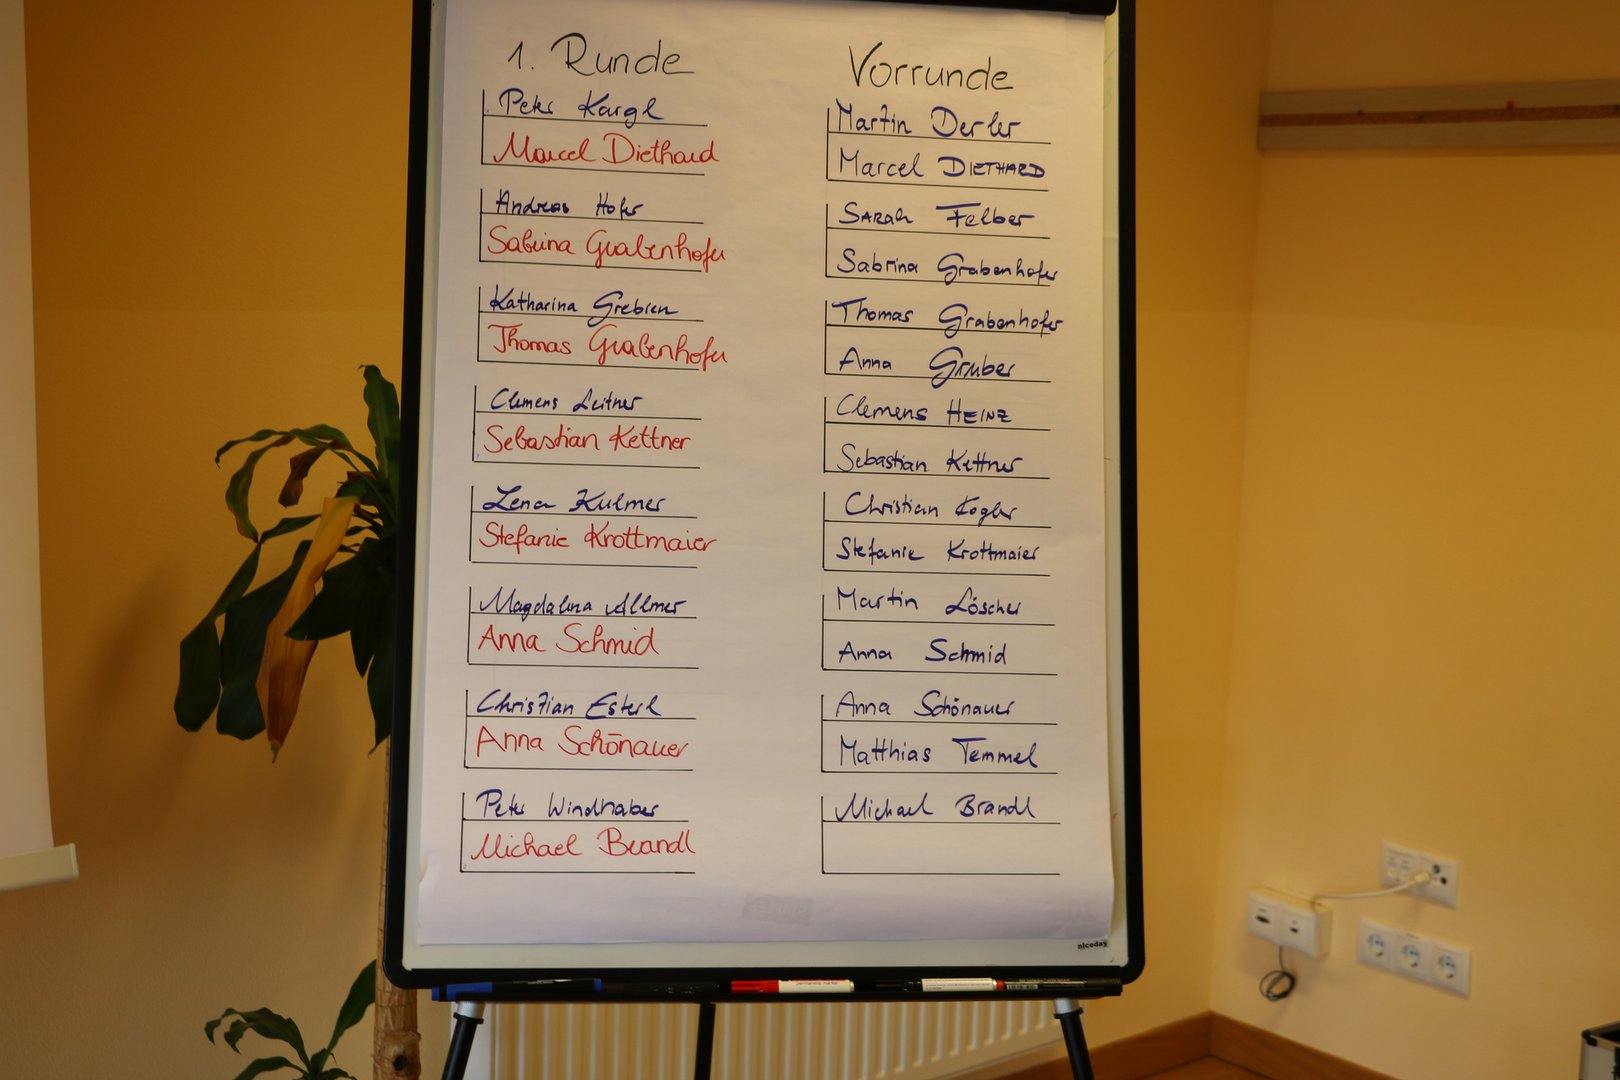 1. Runde
Peter Kargl
Marcel Diethard
Andreas Hofer
Sabrina Grabenhofer
Katharina Grebien
Thomas Grabenhofer
Clemens Leitner
Sebastian Kettner
Lena Kulmer
Stefanie Krottmaier
Magdalena Allmer
Anna Schmid
Christian Esterl
Anna Schönauer
Peter Windhaber
Michael Brandl
Vorrunde
Martin Derler
Marcel DIETHARD
SARAH Felber
Sabrina Grabenhofer
Thomas Grabenhofer
Anna Gruber
Clemens HEINZ
Sebastian Kettner
Christian Kogler
Stefanie Krottmaier
Martin Löscher
Anna Schmid
Anna Schönauer
Matthias Temmel
Michael Brandl
niceday
permanent marker